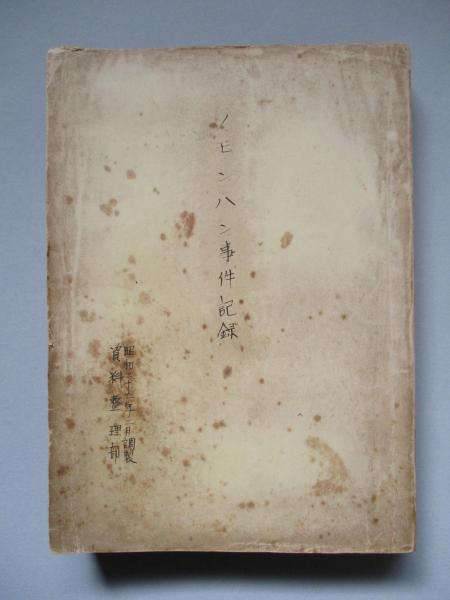 ノモンハン事件記録
昭和三十二年二月調製
資料整理部